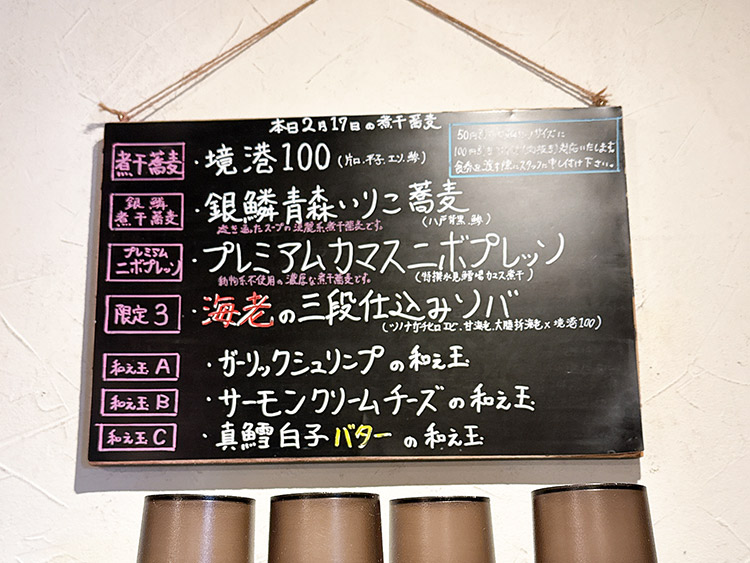 本日2月17日の煮干蕎麦
50円
サイズに
100円
対応いたします
食券を渡す際にスタッフに申し付け下さい。
煮干蕎麦 ・境港100 (片口、平子、エソ、鯵)
銀鱗煮干蕎麦 ・銀鱗青森いりこ蕎麦
透き通ったスープの淡麗系煮干蕎麦です。 (八戸背黒、鯵)
プレミアムニボプレッソ ・プレミアムカマスニボプレッソ
動物系不使用の濃厚な煮干蕎麦です。 (特撰氷見鱈場カマス煮干)
限定3 ・海老の三段仕込みソバ
甘海老、
海老×境港100)
和え玉A ・ガーリックシュリンプの和え玉
和え玉B ・サーモンクリームチーズの和え玉
和え玉C ・真鱈白子バターの和え玉